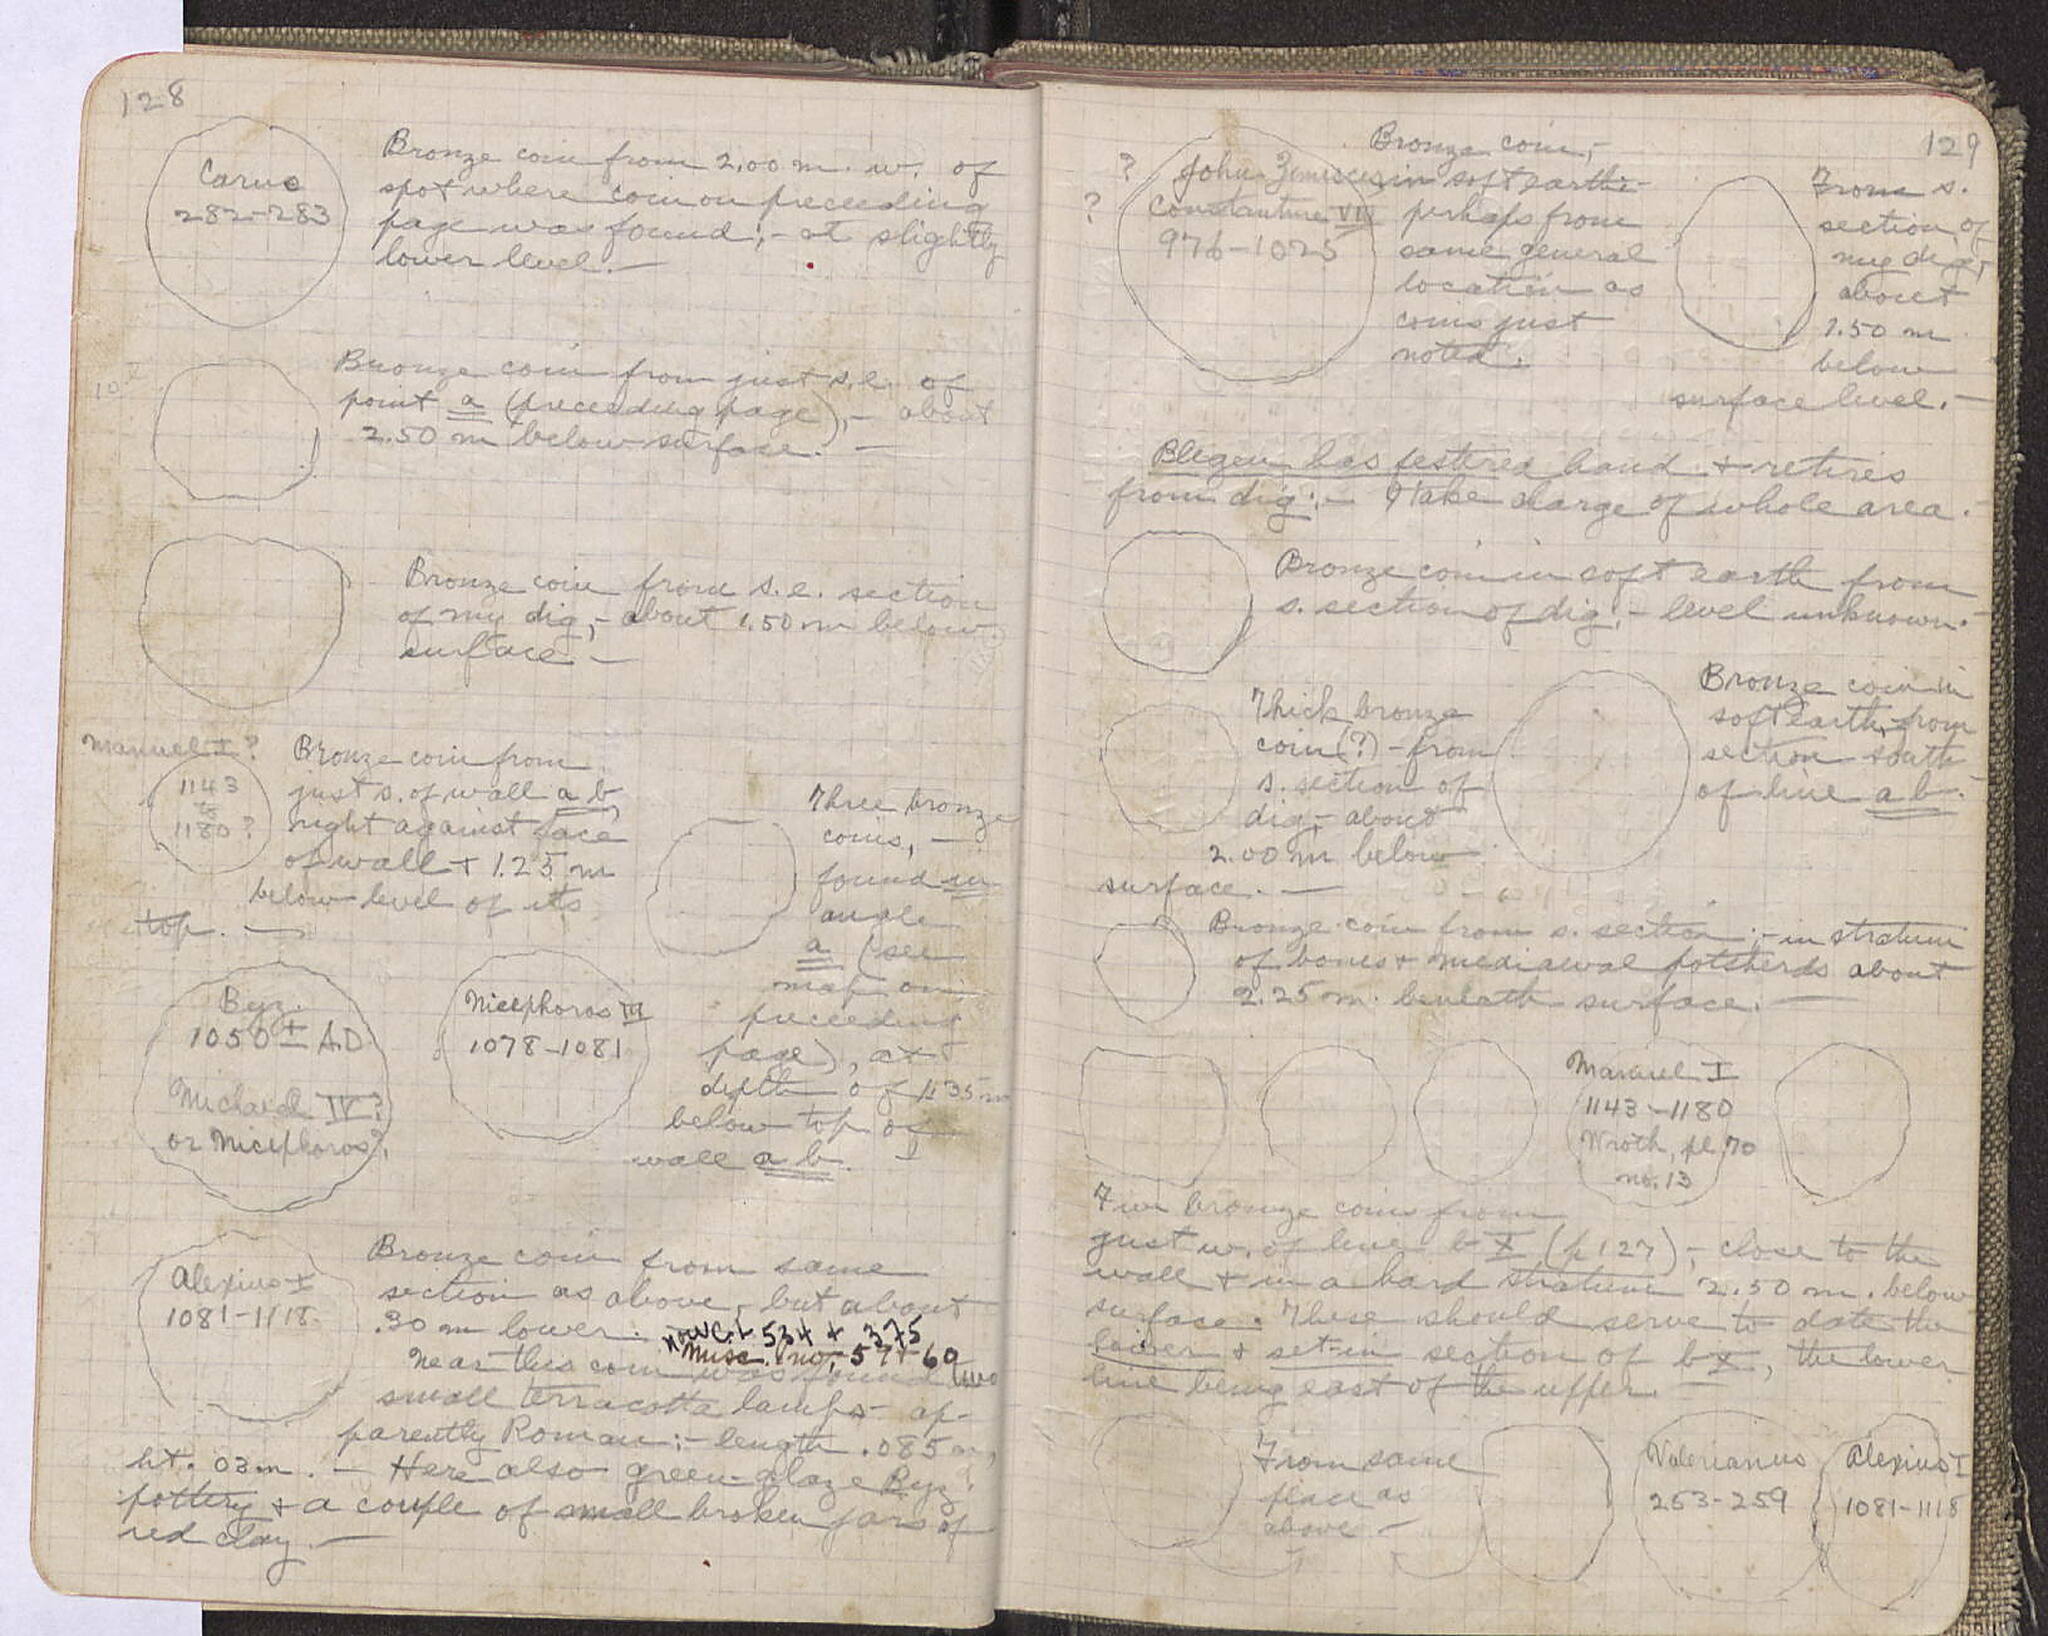 128
Carus
282-283
Bronze coin from 2.00 m. w. of
spot where coin on preceeding
page was found;- at slightly
lower level.—
Bronze coin from just s.e. of
point a (preceeding page),- about
2.50 m below surface.—
Bronze coin from s.e. section
of my dig,- about 1.50 m below
surface.—
Manuel I?
1143
to
1180?
Bronze coin from
just s. of wall a b,
right against face
of wall + 1.25 m
below level of its
top.—
Three bronze
coins,—
found in
angle
a (see
map on
preceeding
page), at
depth of 1.35 m
below top of
wall a b.
Byz.
1050 ± A.D.
Michael IV?
or Nicephoros?
Nicephoros III
1078-1081
Alexius I
1081-1118.
Bronze coin from same
section as above, but about
.30 m lower.
now C.L 534 + 375
Misc. no. 57 + 60
Near this coin was found two
small terracotta lamps- ap-
parently Roman;- length .085 m,
ht. 03 m.— Here also green-glaze Byz.
pottery + a couple of small broken jars of
red clay.—
129
? John Zimisces
? Constantine VIII
976-1025
Bronze coin,-
in soft earth-
perhaps from
same general
location as
coins just
noted.
From s.
section of
my dig,
about
1.50 m
below
surface level.—
Blegen has festered hand + retires
from dig:- I take charge of whole area.-
Bronze coin in soft earth from
s. section of dig;- level unknown.-
Thick bronze
coin (?)- from
s. section of
dig,- about
2.00 m below
surface.—
Bronze coin in
soft earth, from
section south
of line a b.-
Bronze coin from s. section;- in stratum
of bones + mediaeval potsherds about
2.25 m. beneath surface.—
Manuel I
1143-1180
Wroth, pl. 70
no. 13
Five bronze coins from
just w. of line b X (p 127),- close to the
wall + in a hard stratum 2.50 m. below
surface. These should serve to date the
lower + set-in section of b x, the lower
line being east of the upper.—
From same
place as
above-
Valerianus
253-259
Alexius I
1081-1118